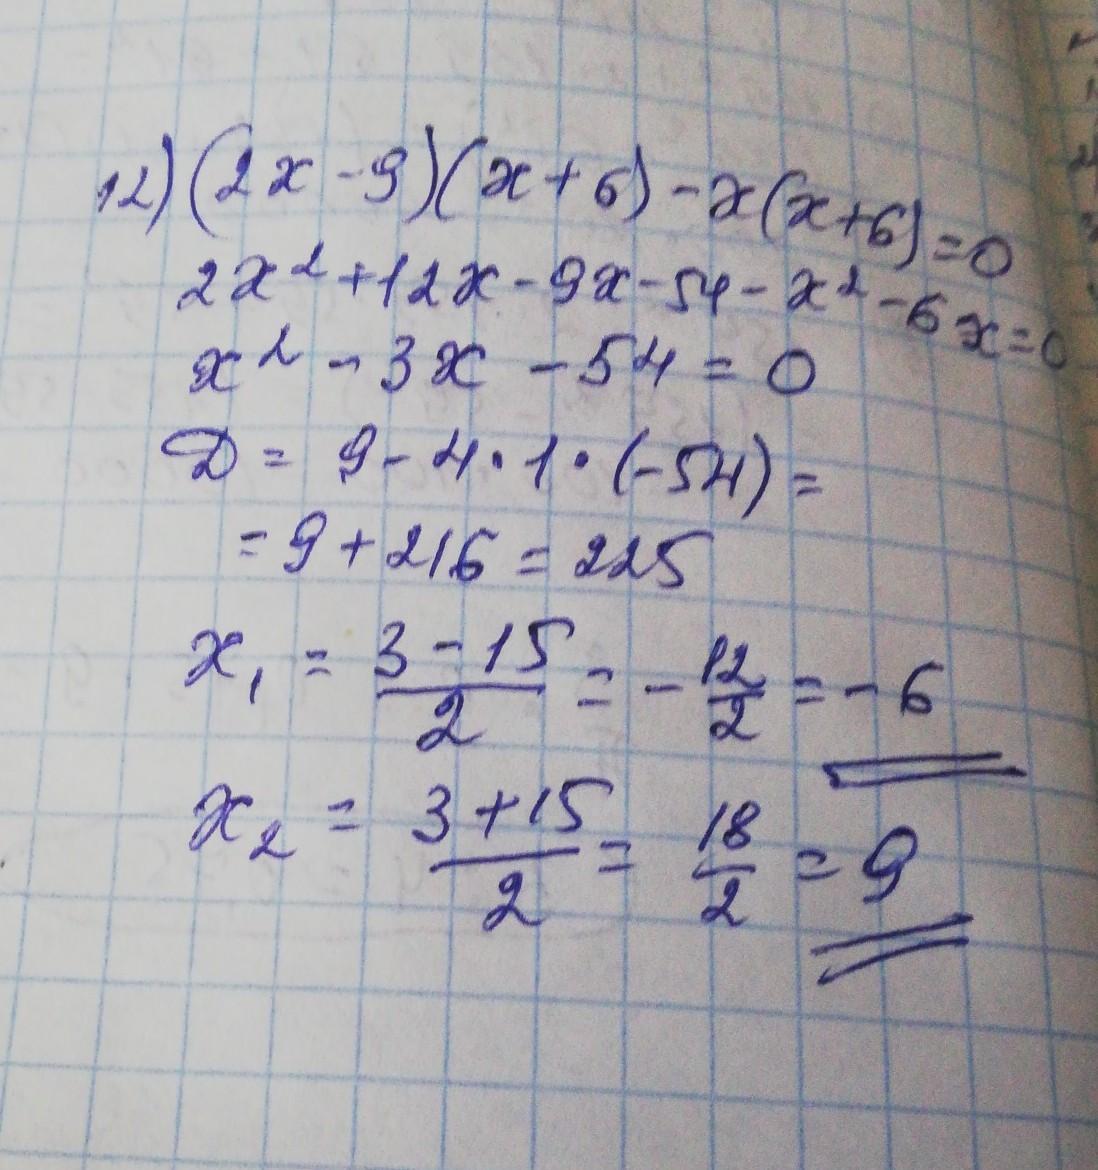 12) (2x - 9)(x + 6) - x(x + 6) = 0
2x² + 12x - 9x - 54 - x² - 6x = 0
x² - 3x - 54 = 0
D = 9 - 4 · 1 · (-54) =
= 9 + 216 = 225
x₁ = (3 - 15)/2 = - 12/2 = - 6
x₂ = (3 + 15)/2 = 18/2 = 9